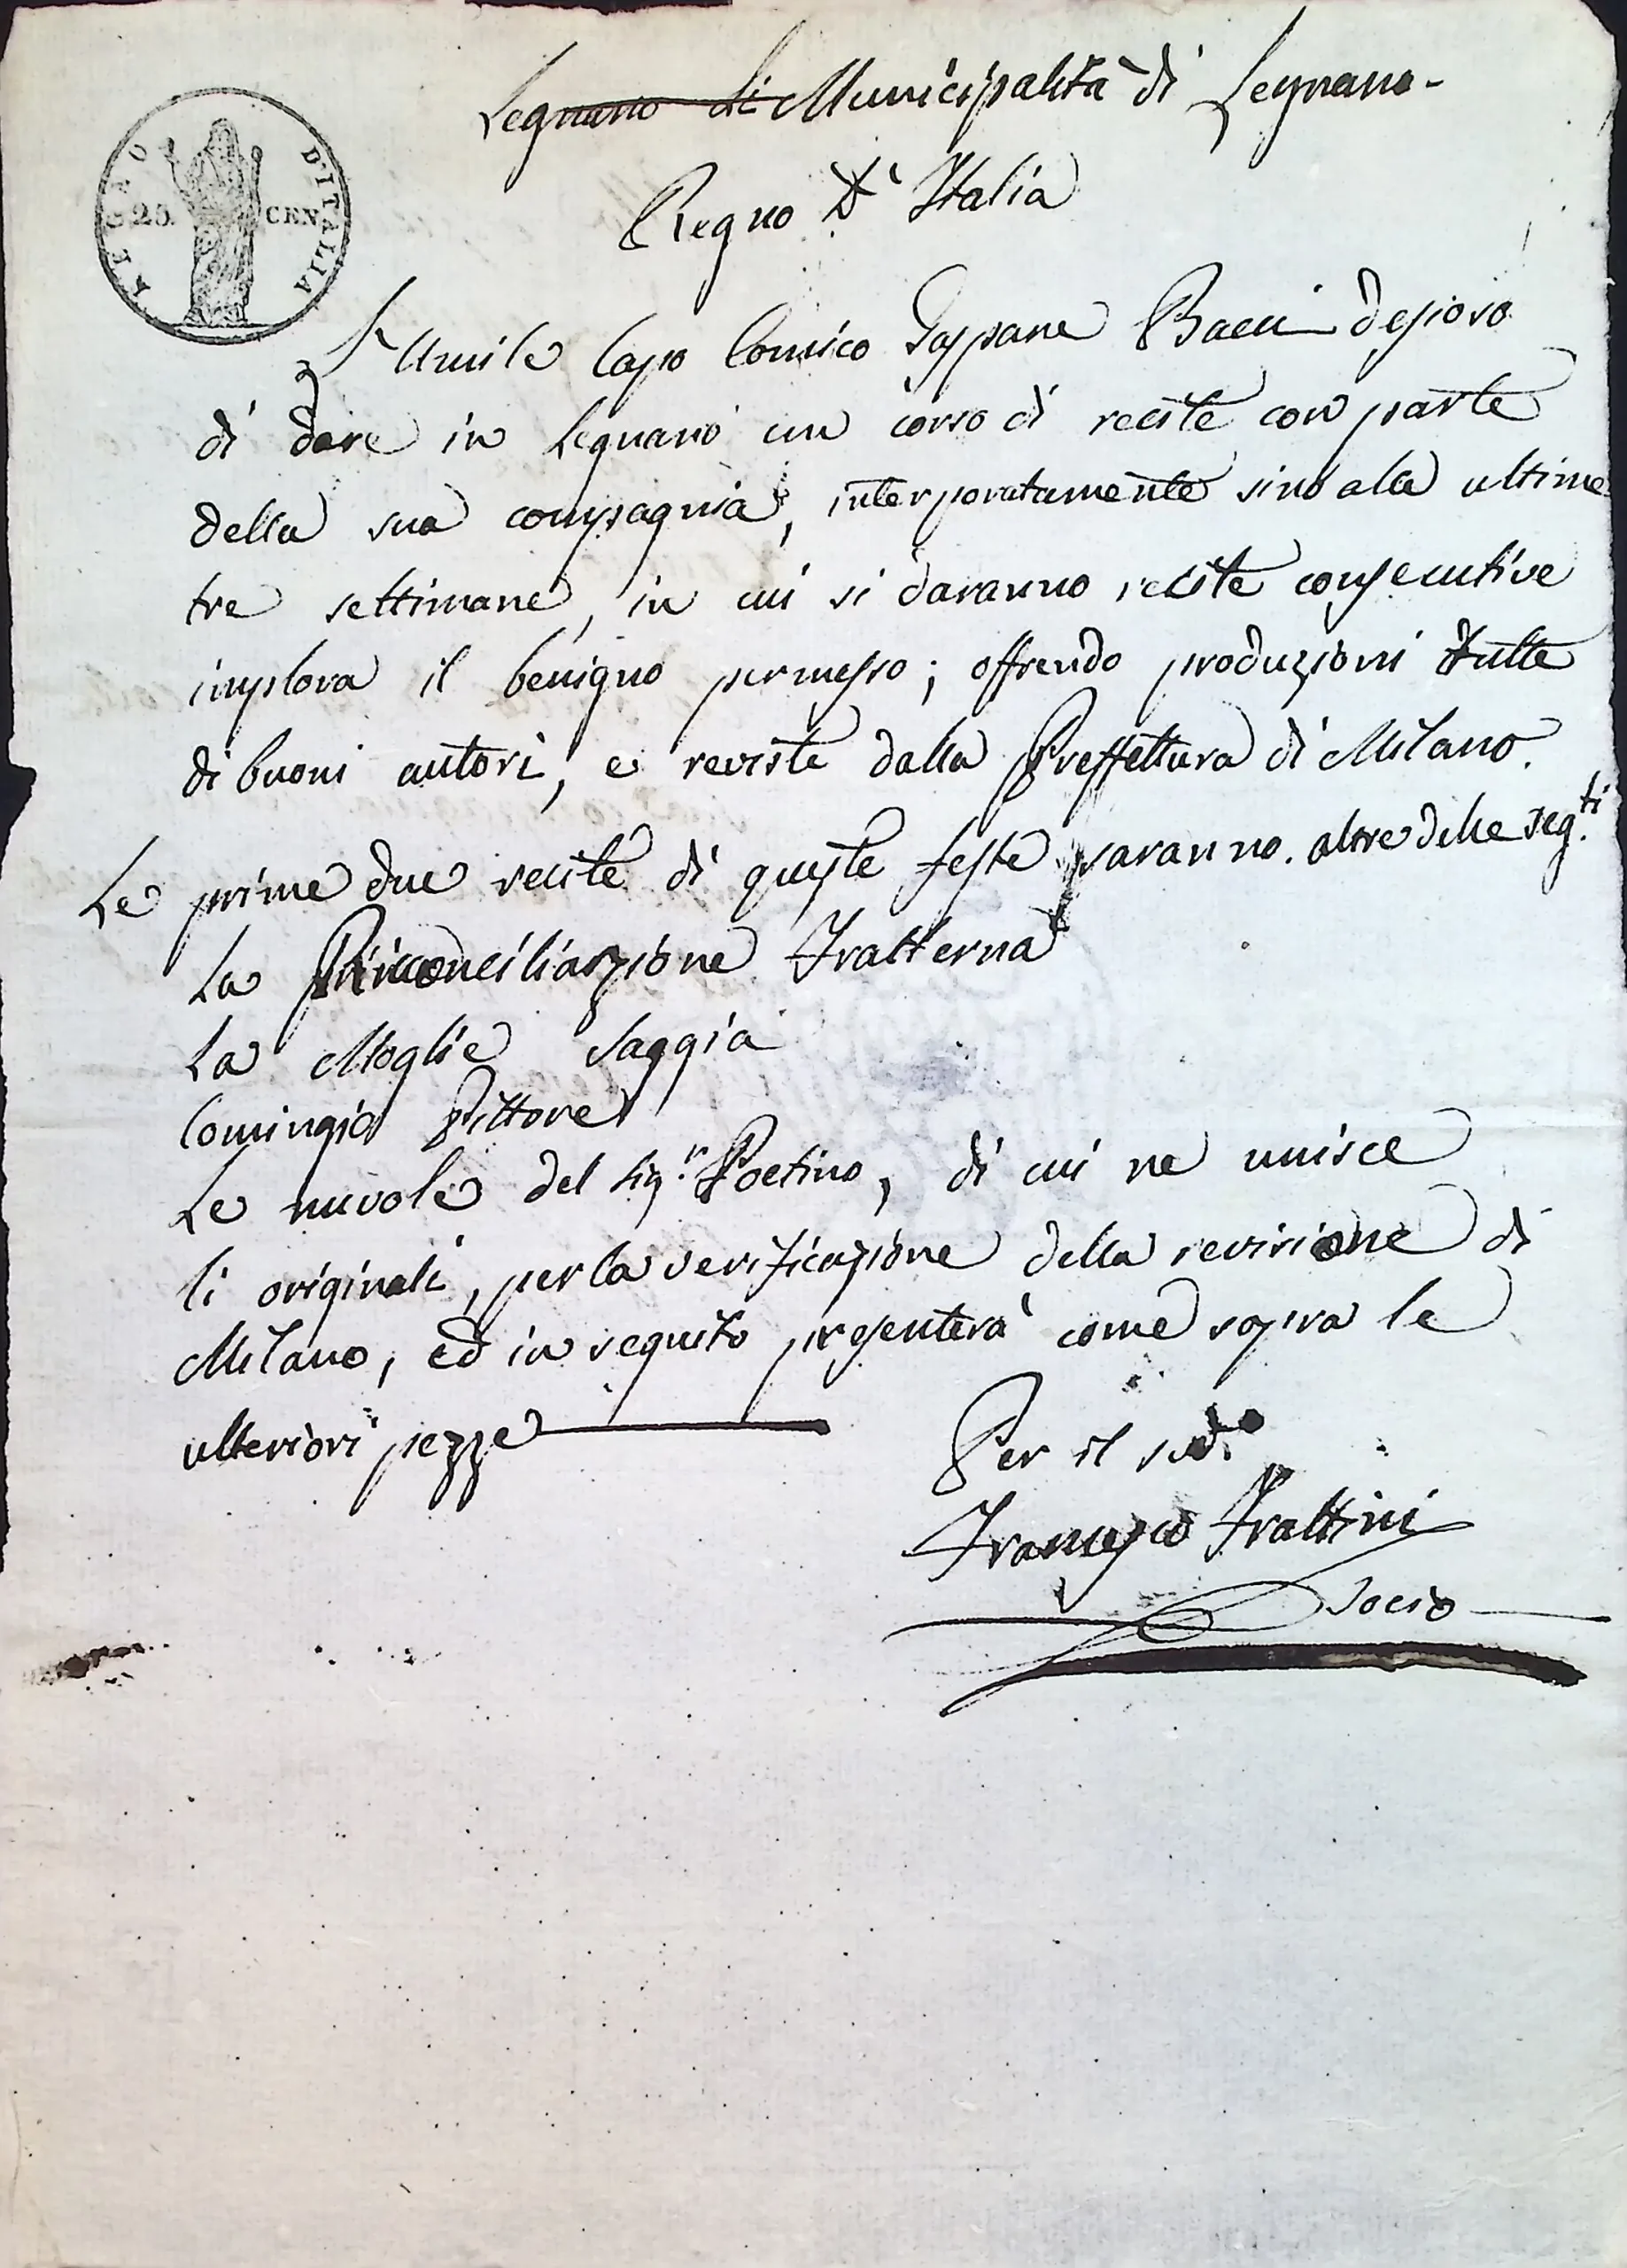 Legnano di Municipalità di Legnano-
REGNO D'ITALIA
25. CEN.
Regno D' Italia
L'Umile Capo Comico Gaspare Bacci desioso
di dare in Legnano un corso di recite con parte
della sua compagnia, interporatamente sino alla ultime
tre settimane, in cui si daranno recite consecutive
implora il benigno permesso; offrendo produzioni tutte
di buoni autori, e reviste dalla Preffettura di Milano.
Le prime due recite di queste feste saranno. altre delle seg.ti
La Riconciliazione Fratterna
La Moglie Saggia
Comingio Pittore
Le nuvole del Sig.r Poetino, di cui ne unisce
li originali, per la verificazione della revisione di
Milano, ed in seguito presenterà come sopra le
ulteriori pezze
Per il sud.o
Francesco Frattini
Socio